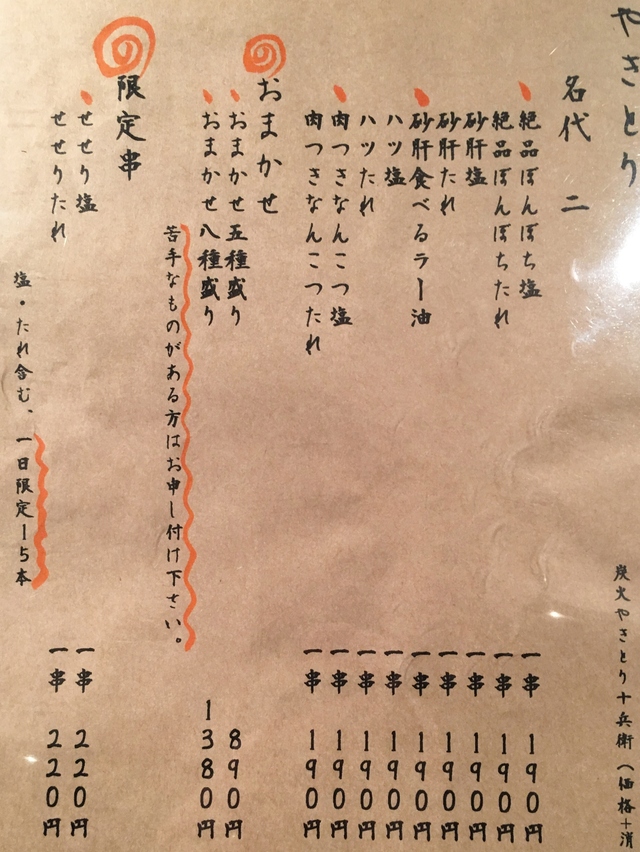 やきとり
炭火やきとり十兵衛（価格＋消
名代 二
絶品ぼんぼち塩 一串 190円
絶品ぼんぼちたれ 一串 190円
砂肝塩 一串 190円
砂肝たれ 一串 190円
砂肝食べるラー油 一串 190円
ハツ塩 一串 190円
ハツたれ 一串 190円
肉つきなんこつ塩 一串 190円
肉つきなんこつたれ 一串 190円
おまかせ
おまかせ五種盛り 890円
おまかせ八種盛り 1380円
苦手なものがある方はお申し付け下さい。
限定串
せせり塩 一串 220円
せせりたれ 一串 220円
塩・たれ含む、一日限定15本